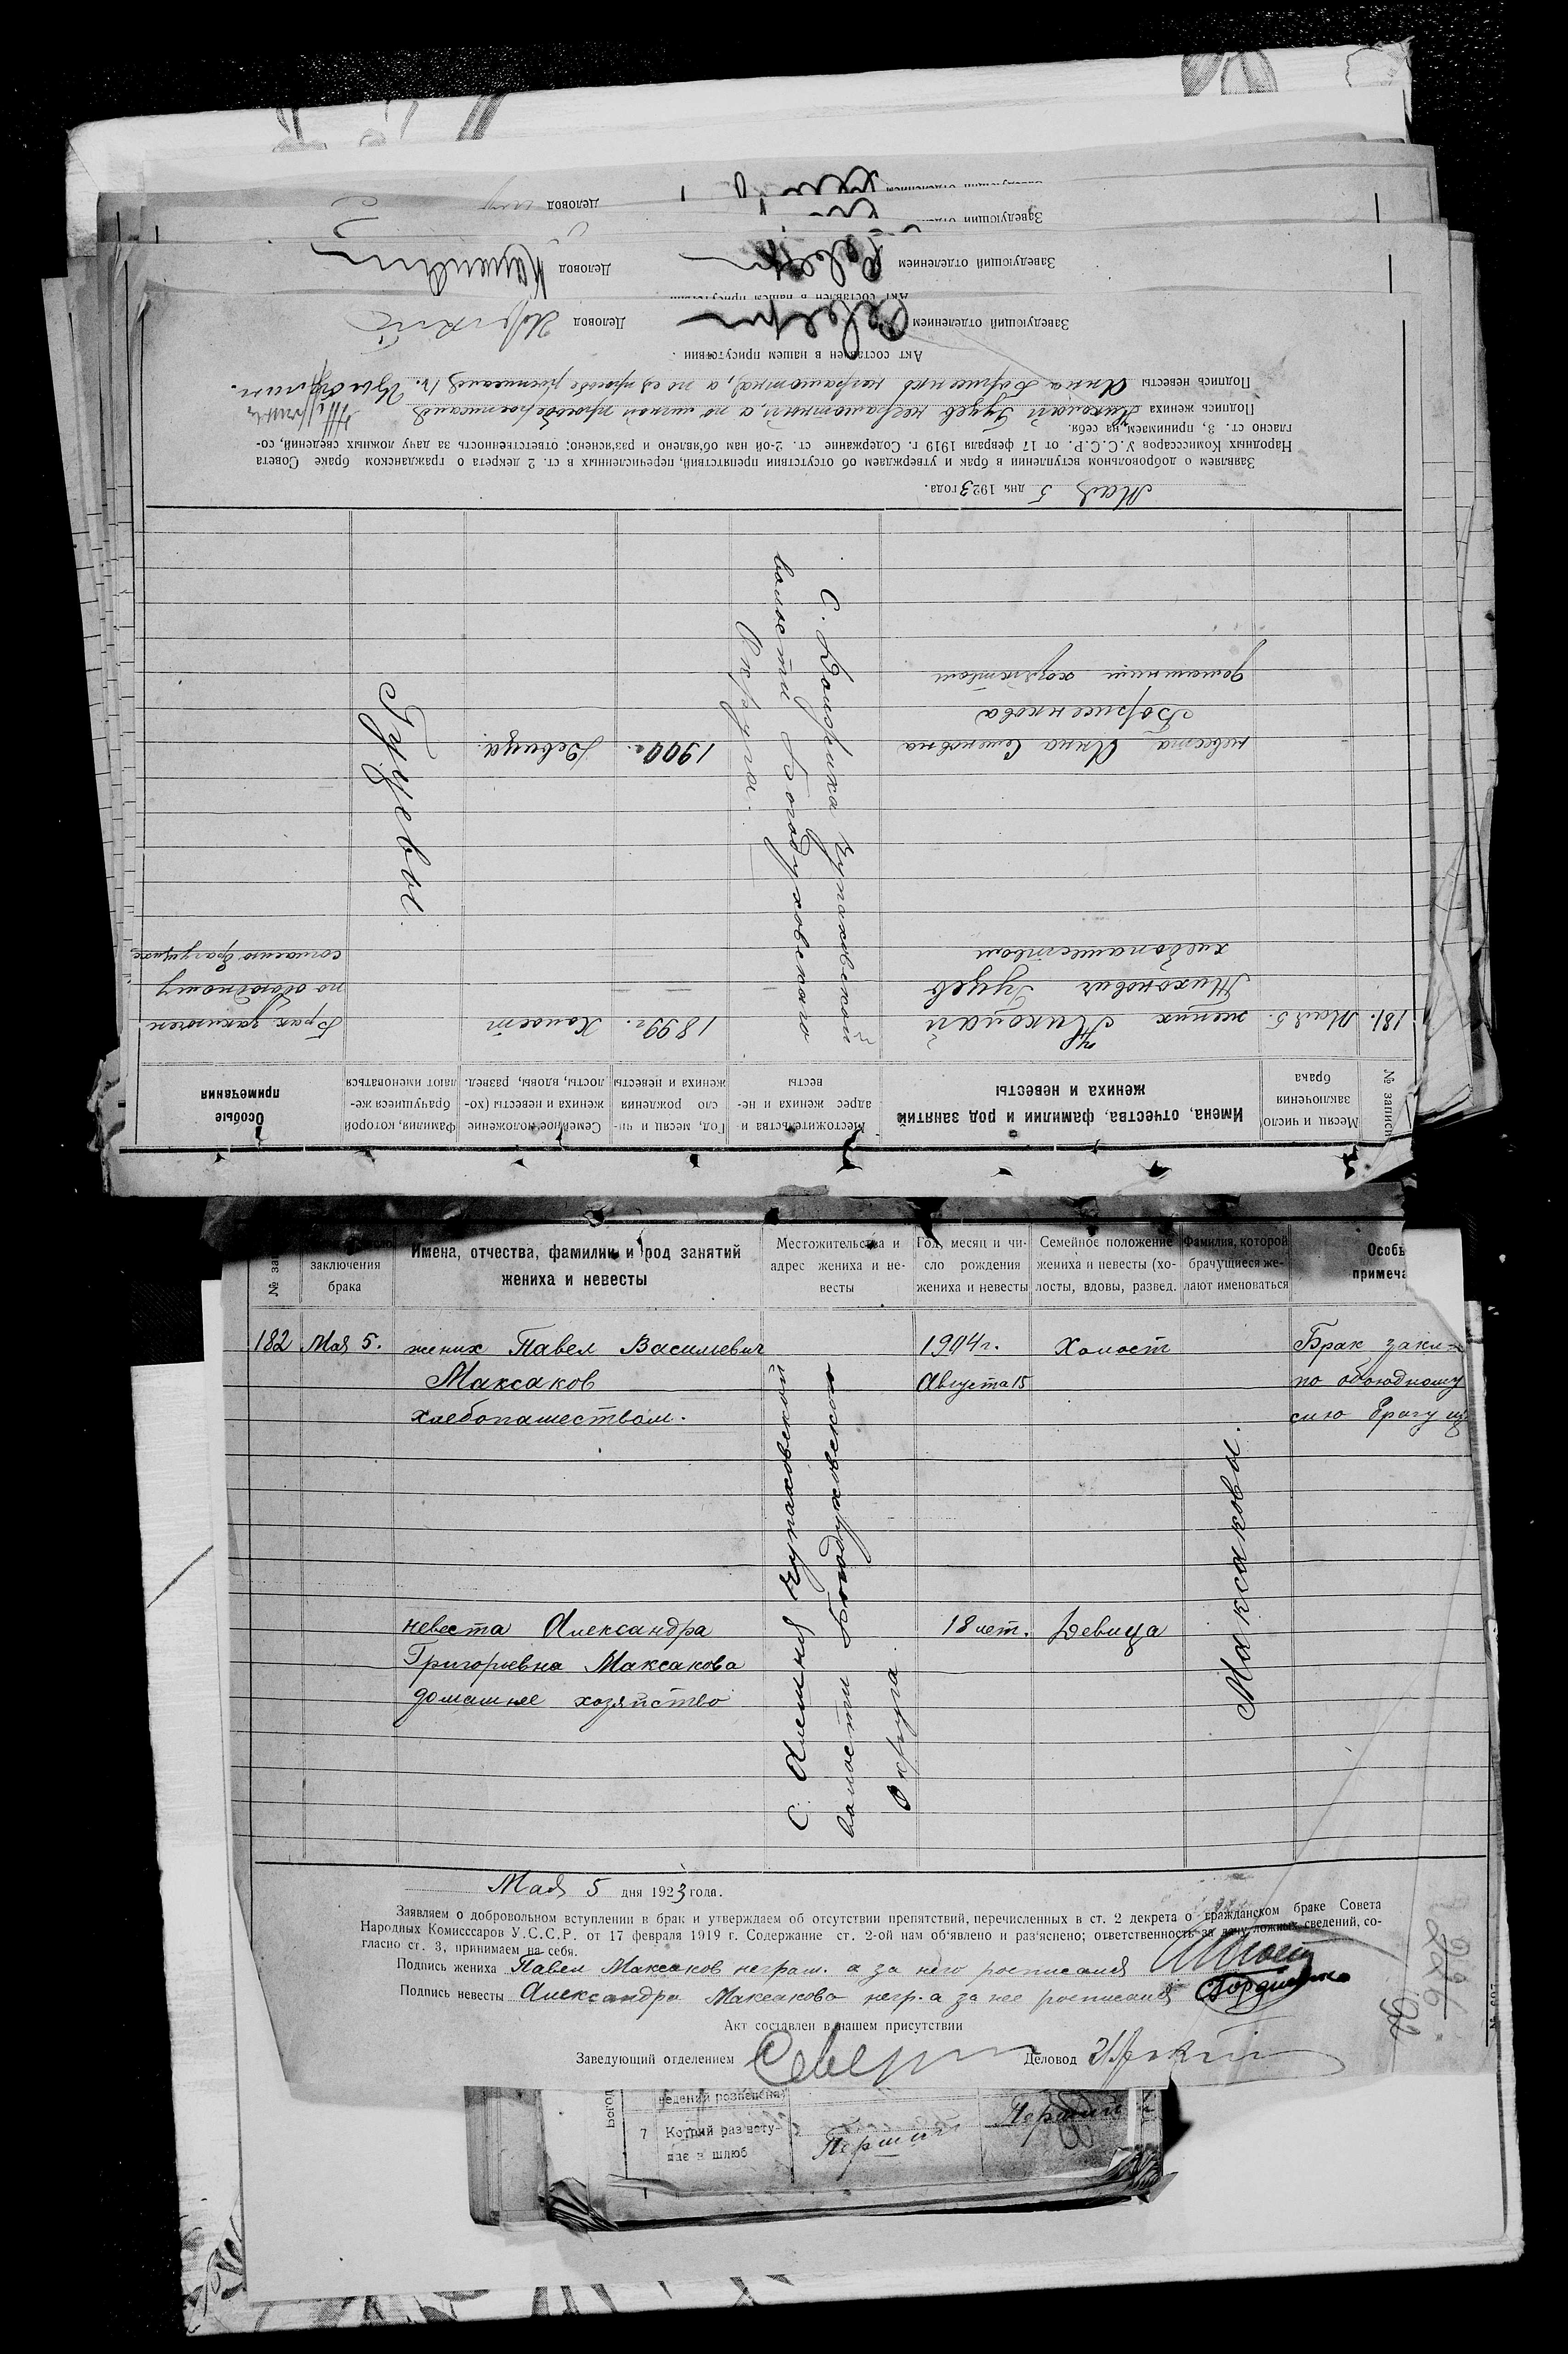 Деловод
Заведующий отделением
Деловод
Заведующий отделением
Деловод
Заведующий отделением
Акт составлен в нашем присутствии
№ записи
Месяц и число заключения брака
Имена, отчества, фамилии и род занятий жениха и невесты
Местожительства и адрес жениха и не-
весты
Год, месяц и чи-
сло рождения
жениха и невесты
Семейное положение
жениха и невесты (хо-
лосты, вдовы, развед.
Фамилия, которой
брачущиеся же-
лают именоваться
Особые
примечания
181. Мая 5. жених Николай
Тихонович Гузев
хлебопашеством
1899г. Холост
Брак заключен
по обоюдному
согласию брачущихся
С. Долбрика Чупаховской
волости Богодуховского
Округа.
Гузевы.
невеста Анна Семеновна
Борисенкова
домашним хозяйством
1900г. Девица.
Мая 5 дня 1923 года.
Заявляем о добровольном вступлении в брак и утверждаем об отсутствии препятствий, перечисленных в ст. 2 декрета о гражданском браке Совета
Народных Комиссаров У.С.С.Р. от 17 февраля 1919 г. Содержание ст. 2-ой нам об'явлено и раз'яснено; ответственность за дачу ложных сведений, со-
гласно ст. 3, принимаем на себя.
Подпись жениха Николай Гузев неграмотный, а по личной просьбе росписался
Подпись невесты Анна Борисенкова неграмотна, а по ея просьбе росписался
Акт составлен в нашем присутствии
Заведующий отделением Деловод
№ за
заключения
брака
Имена, отчества, фамилии и род занятий
жениха и невесты
Местожительства и
адрес жениха и не-
весты
Год, месяц и чи-
сло рождения
жениха и невесты
Семейное положение
жениха и невесты (хо-
лосты, вдовы, развед.
Фамилия, которой
брачущиеся же-
лают именоваться
Особы
примеча
182 Мая 5. жених Павел Васильевич 1904г. Холост Брак закл
Максаков Августа 15 по обоюдному
хлебопашеством. сию брачущ
С. Алешня Чупаховской
волости Богодуховского
Округа
Максаковы.
невеста Александра 18 лет. Девица
Григорьевна Максакова
домашнее хозяйство
Мая 5 дня 1923 года.
Заявляем о добровольном вступлении в брак и утверждаем об отсутствии препятствий, перечисленных в ст. 2 декрета о гражданском браке Совета
Народных Комисссаров У.С.С.Р. от 17 февраля 1919 г. Содержание ст. 2-ой нам об'явлено и раз'яснено; ответственность за дачу ложных сведений, со-
гласно ст. 3, принимаем на себя.
Подпись жениха Павел Максаков неграм. а за него росписался
Подпись невесты Александра Максакова негр. а за нее росписался
Акт составлен в нашем присутствии
Заведующий отделением Деловод
7 Котрий раз всту-
пає в шлюб
Перший Перший